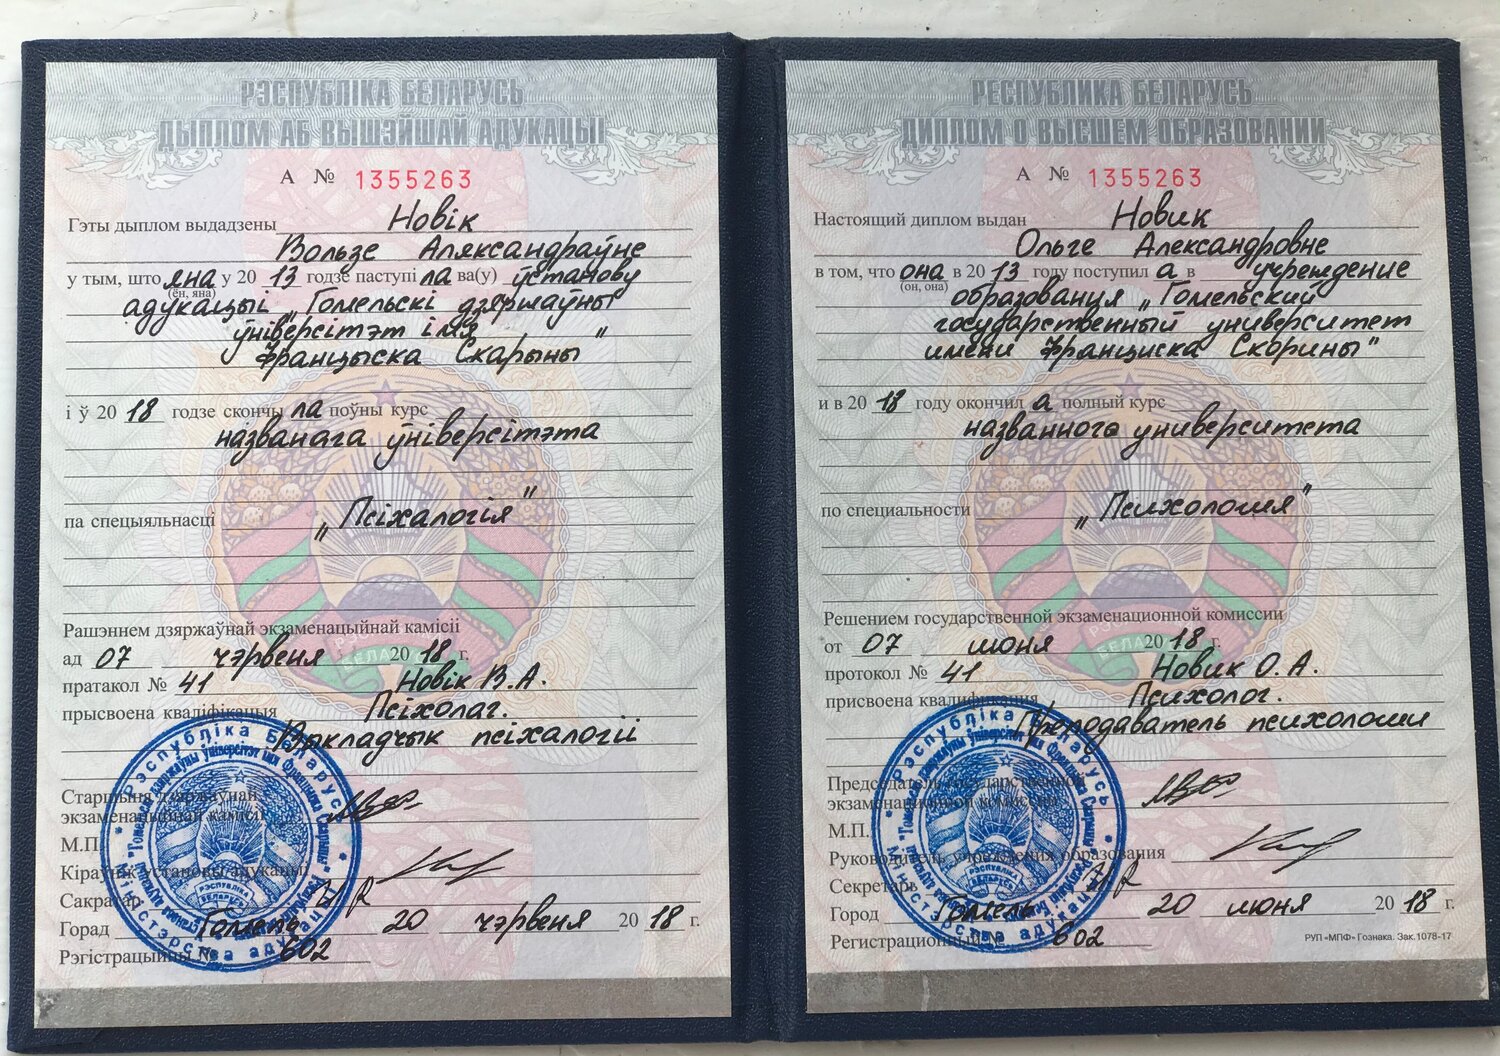 РЭСПУБЛІКА БЕЛАРУСЬ
ДЫПЛОМ АБ ВЫШЭЙШАЙ АДУКАЦЫІ
А № 1355263
Гэты дыплом выдадзены Новік
Вользе Аляксандраўне
у тым, што яна у 20 13 годзе паступі ла ва(у) ўстанову
(ён, яна)
адукацыі „Гомельскі дзяржаўны
ўніверсітэт імя
Францыска Скарыны"
і ў 20 18 годзе скончы ла поўны курс
названага ўніверсітэта
па спецыяльнасці „Псіхалогія"
Рашэннем дзяржаўнай экзаменацыйнай камісіі
ад 07 чэрвеня 20 18 г.
пратакол № 41 Новік В.А.
прысвоена кваліфікацыя Псіхолаг.
Выкладчык псіхалогіі
Старшыня дзяржаўнай
экзаменацыйнай камісіі
М.П.
Кіраўнік установы адукацыі
Сакратар
Горад Гомель 20 чэрвеня 20 18 г.
Рэгістрацыйны № 602
Рэспубліка Беларусь
Міністэрства адукацыі
РЕСПУБЛИКА БЕЛАРУСЬ
ДИПЛОМ О ВЫСШЕМ ОБРАЗОВАНИИ
А № 1355263
Настоящий диплом выдан Новик
Ольге Александровне
в том, что она в 20 13 году поступил а в учреждение
(он, она)
образования „Гомельский
государственный университет
имени Франциска Скорины"
и в 20 18 году окончил а полный курс
названного университета
по специальности „Психология"
Решением государственной экзаменационной комиссии
от 07 июня 20 18 г.
протокол № 41 Новик О.А.
присвоена квалификация Психолог.
Преподаватель психологии
Председатель государственной
экзаменационной комиссии
М.П.
Руководитель учреждения образования
Секретарь
Город Гомель 20 июня 20 18 г.
Регистрационный № 602
РУП «МПФ» Гознака. Зак. 1078-17
Рэспубліка Беларусь
Міністэрства адукацыі